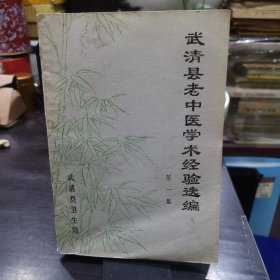 武清县老中医学术经验选编
第一集
武清县卫生局